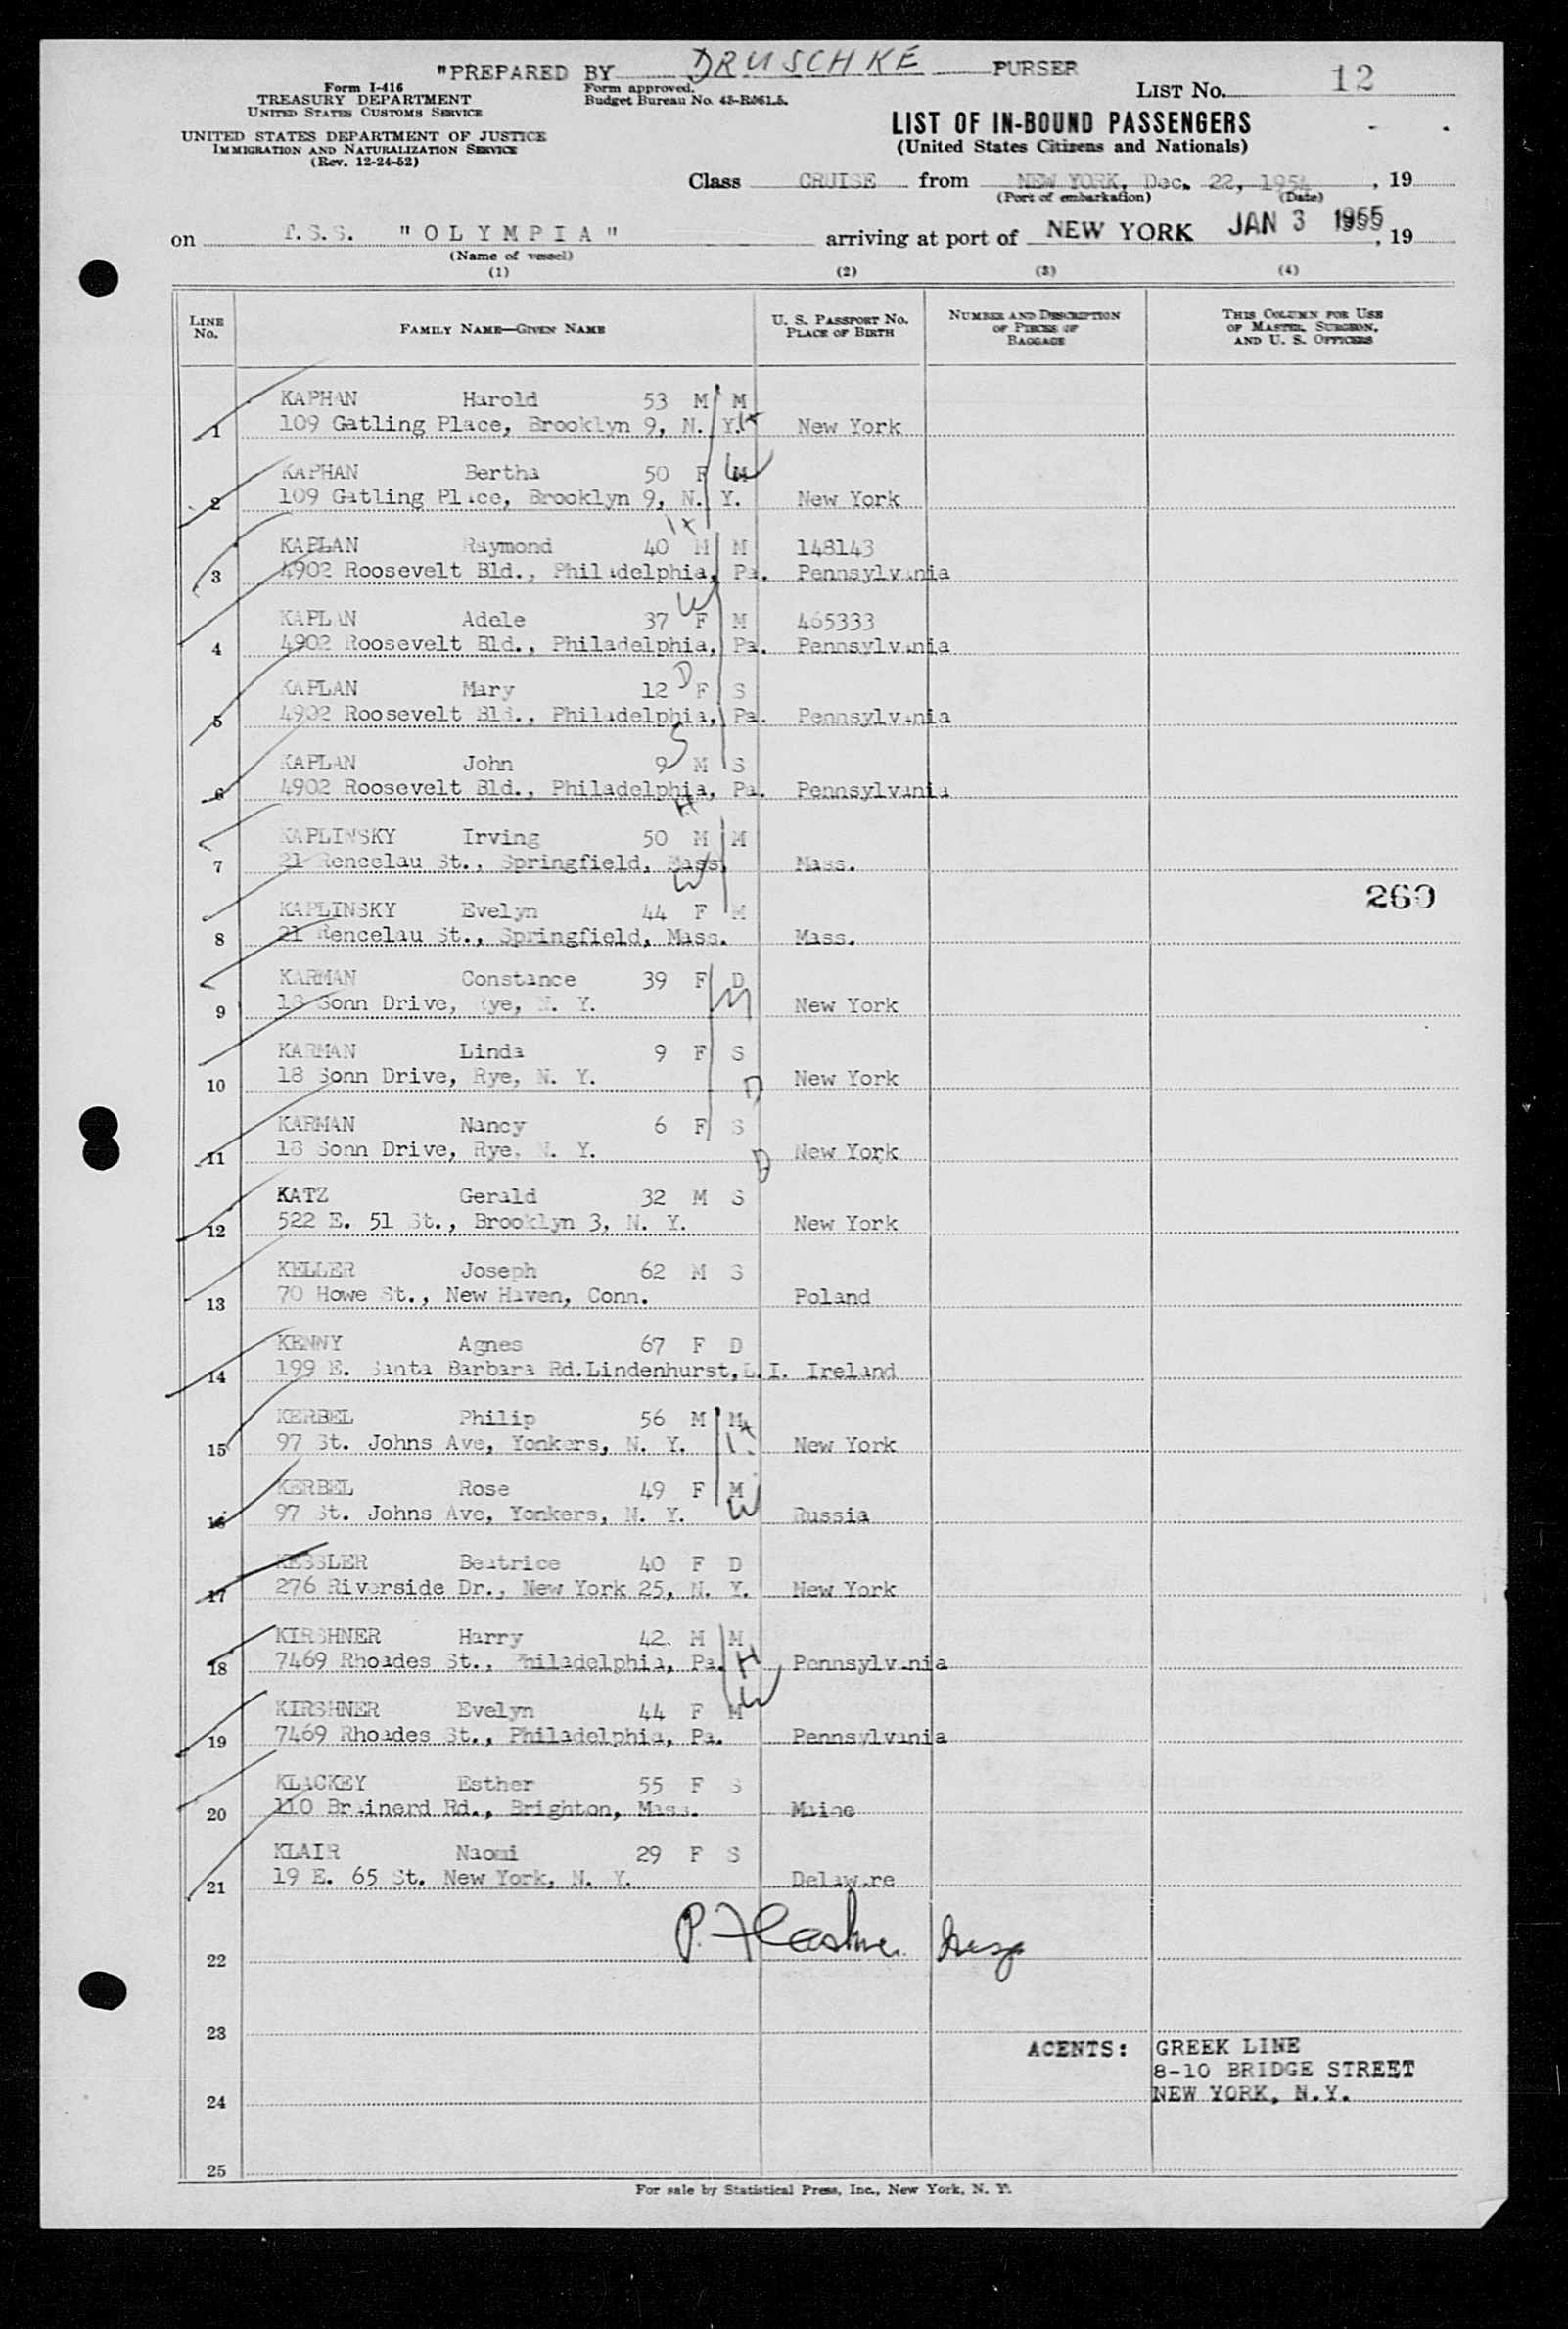 "PREPARED BY DRUSCHKE PURSER
Form I-416
TREASURY DEPARTMENT
UNITED STATES CUSTOMS SERVICE
UNITED STATES DEPARTMENT OF JUSTICE
IMMIGRATION AND NATURALIZATION SERVICE
(Rev. 12-24-52)
Form approved.
Budget Bureau No. 43-R061.5.
LIST No. 12
LIST OF IN-BOUND PASSENGERS
(United States Citizens and Nationals)
Class CRUISE from NEW YORK, Dec. 22, 1954, 19
(Port of embarkation) (Date)
on T.S.S. "OLYMPIA" arriving at port of NEW YORK JAN 3 1955, 19
(Name of vessel)
(1) (2) (3) (4)
LINE No. FAMILY NAME—GIVEN NAME U. S. PASSPORT No. PLACE OF BIRTH NUMBER AND DESCRIPTION OF PIECES OF BAGGAGE THIS COLUMN FOR USE OF MASTER, SURGEON, AND U. S. OFFICERS
KAPHAN Harold 53 M M
1 109 Gatling Place, Brooklyn 9, N. Y. New York
KAPHAN Bertha 50 F M W
2 109 Gatling Place, Brooklyn 9, N. Y. New York
KAPLAN Raymond 40 M M 148143
3 4902 Roosevelt Bld., Philadelphia, Pa. Pennsylvania
KAPLAN Adele 37 W F M 465333
4 4902 Roosevelt Bld., Philadelphia, Pa. Pennsylvania
KAPLAN Mary 12 D F S
5 4902 Roosevelt Bld., Philadelphia, Pa. Pennsylvania
KAPLAN John 9 S M S
6 4902 Roosevelt Bld., Philadelphia, Pa. Pennsylvania
KAPLINSKY Irving 50 H M M
7 21 Rencelau St., Springfield, Mass. Mass.
W
260
KAPLINSKY Evelyn 44 F M
8 21 Rencelau St., Springfield, Mass. Mass.
KARMAN Constance 39 F D M
9 18 Sonn Drive, Rye, N. Y. New York
KARMAN Linda 9 F S
10 18 Sonn Drive, Rye, N. Y. D New York
KARMAN Nancy 6 F S
11 18 Sonn Drive, Rye, N. Y. D New York
KATZ Gerald 32 M S
12 522 E. 51 St., Brooklyn 3, N. Y. New York
KELLER Joseph 62 M S
13 70 Howe St., New Haven, Conn. Poland
KENNY Agnes 67 F D
14 199 E. Santa Barbara Rd.Lindenhurst,L.I. Ireland
KERBEL Philip 56 M M
15 97 St. Johns Ave, Yonkers, N. Y. H New York
KERBEL Rose 49 F M W
16 97 St. Johns Ave, Yonkers, N. Y. Russia
KESSLER Beatrice 40 F D
17 276 Riverside Dr., New York 25, N. Y. New York
KIRSHNER Harry 42 M M
18 7469 Rhoades St., Philadelphia, Pa. H Pennsylvania
W
KIRSHNER Evelyn 44 F M
19 7469 Rhoades St., Philadelphia, Pa. Pennsylvania
KLACKEY Esther 55 F S
20 110 Brainerd Rd., Brighton, Mass. Maine
KLAIR Naomi 29 F S
21 19 E. 65 St. New York, N. Y. Delaware
22 P.
23
AGENTS: GREEK LINE
8-10 BRIDGE STREET
24 NEW YORK, N.Y.
25
For sale by Statistical Press, Inc., New York, N. Y.